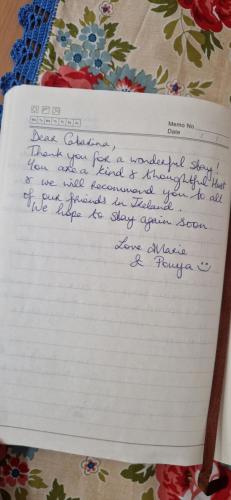 Memo No.
Date
Dear Catarina,
Thank you for a wonderful stay!
You are a kind & thoughtful Host
& we will recommend you to all
of our friends in Ireland.
We hope to stay again soon
Love Marie
&